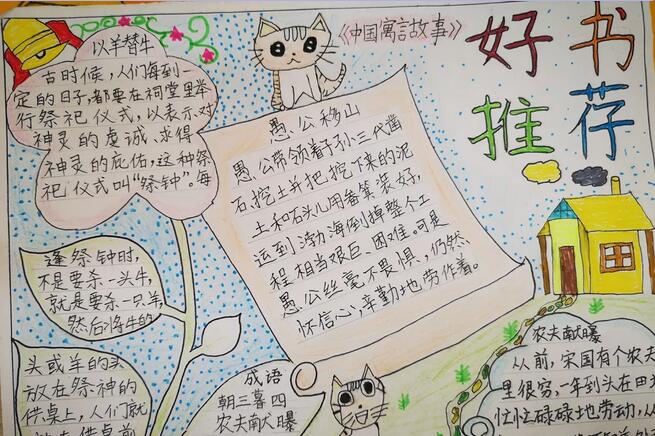 《中国寓言故事》
好书
推荐
以羊替牛
古时候,人们每到一
定的日子,都要在祠堂里举
行祭祀仪式,以表示对
神灵的虔诚、求得
神灵的庇佑,这种祭
祀仪式叫“祭钟”。每
逢祭钟时,
不是要杀一头牛,
就是要杀一只羊,
然后将牛的
头或羊的头
放在祭神的
供桌上,人们就
愚公移山
愚公带领着子孙三代凿
石挖土并把挖下来的泥
土和石头儿用畚箕装好,
运到渤海倒掉整个工
程相当艰巨、困难。可是
愚公丝毫不畏惧,仍然
怀信心,辛勤地劳作着。
成语
朝三暮四
农夫献曝
农夫献曝
从前,宋国有个农夫
里很穷,一年到头在田
忙忙碌碌地劳动,从